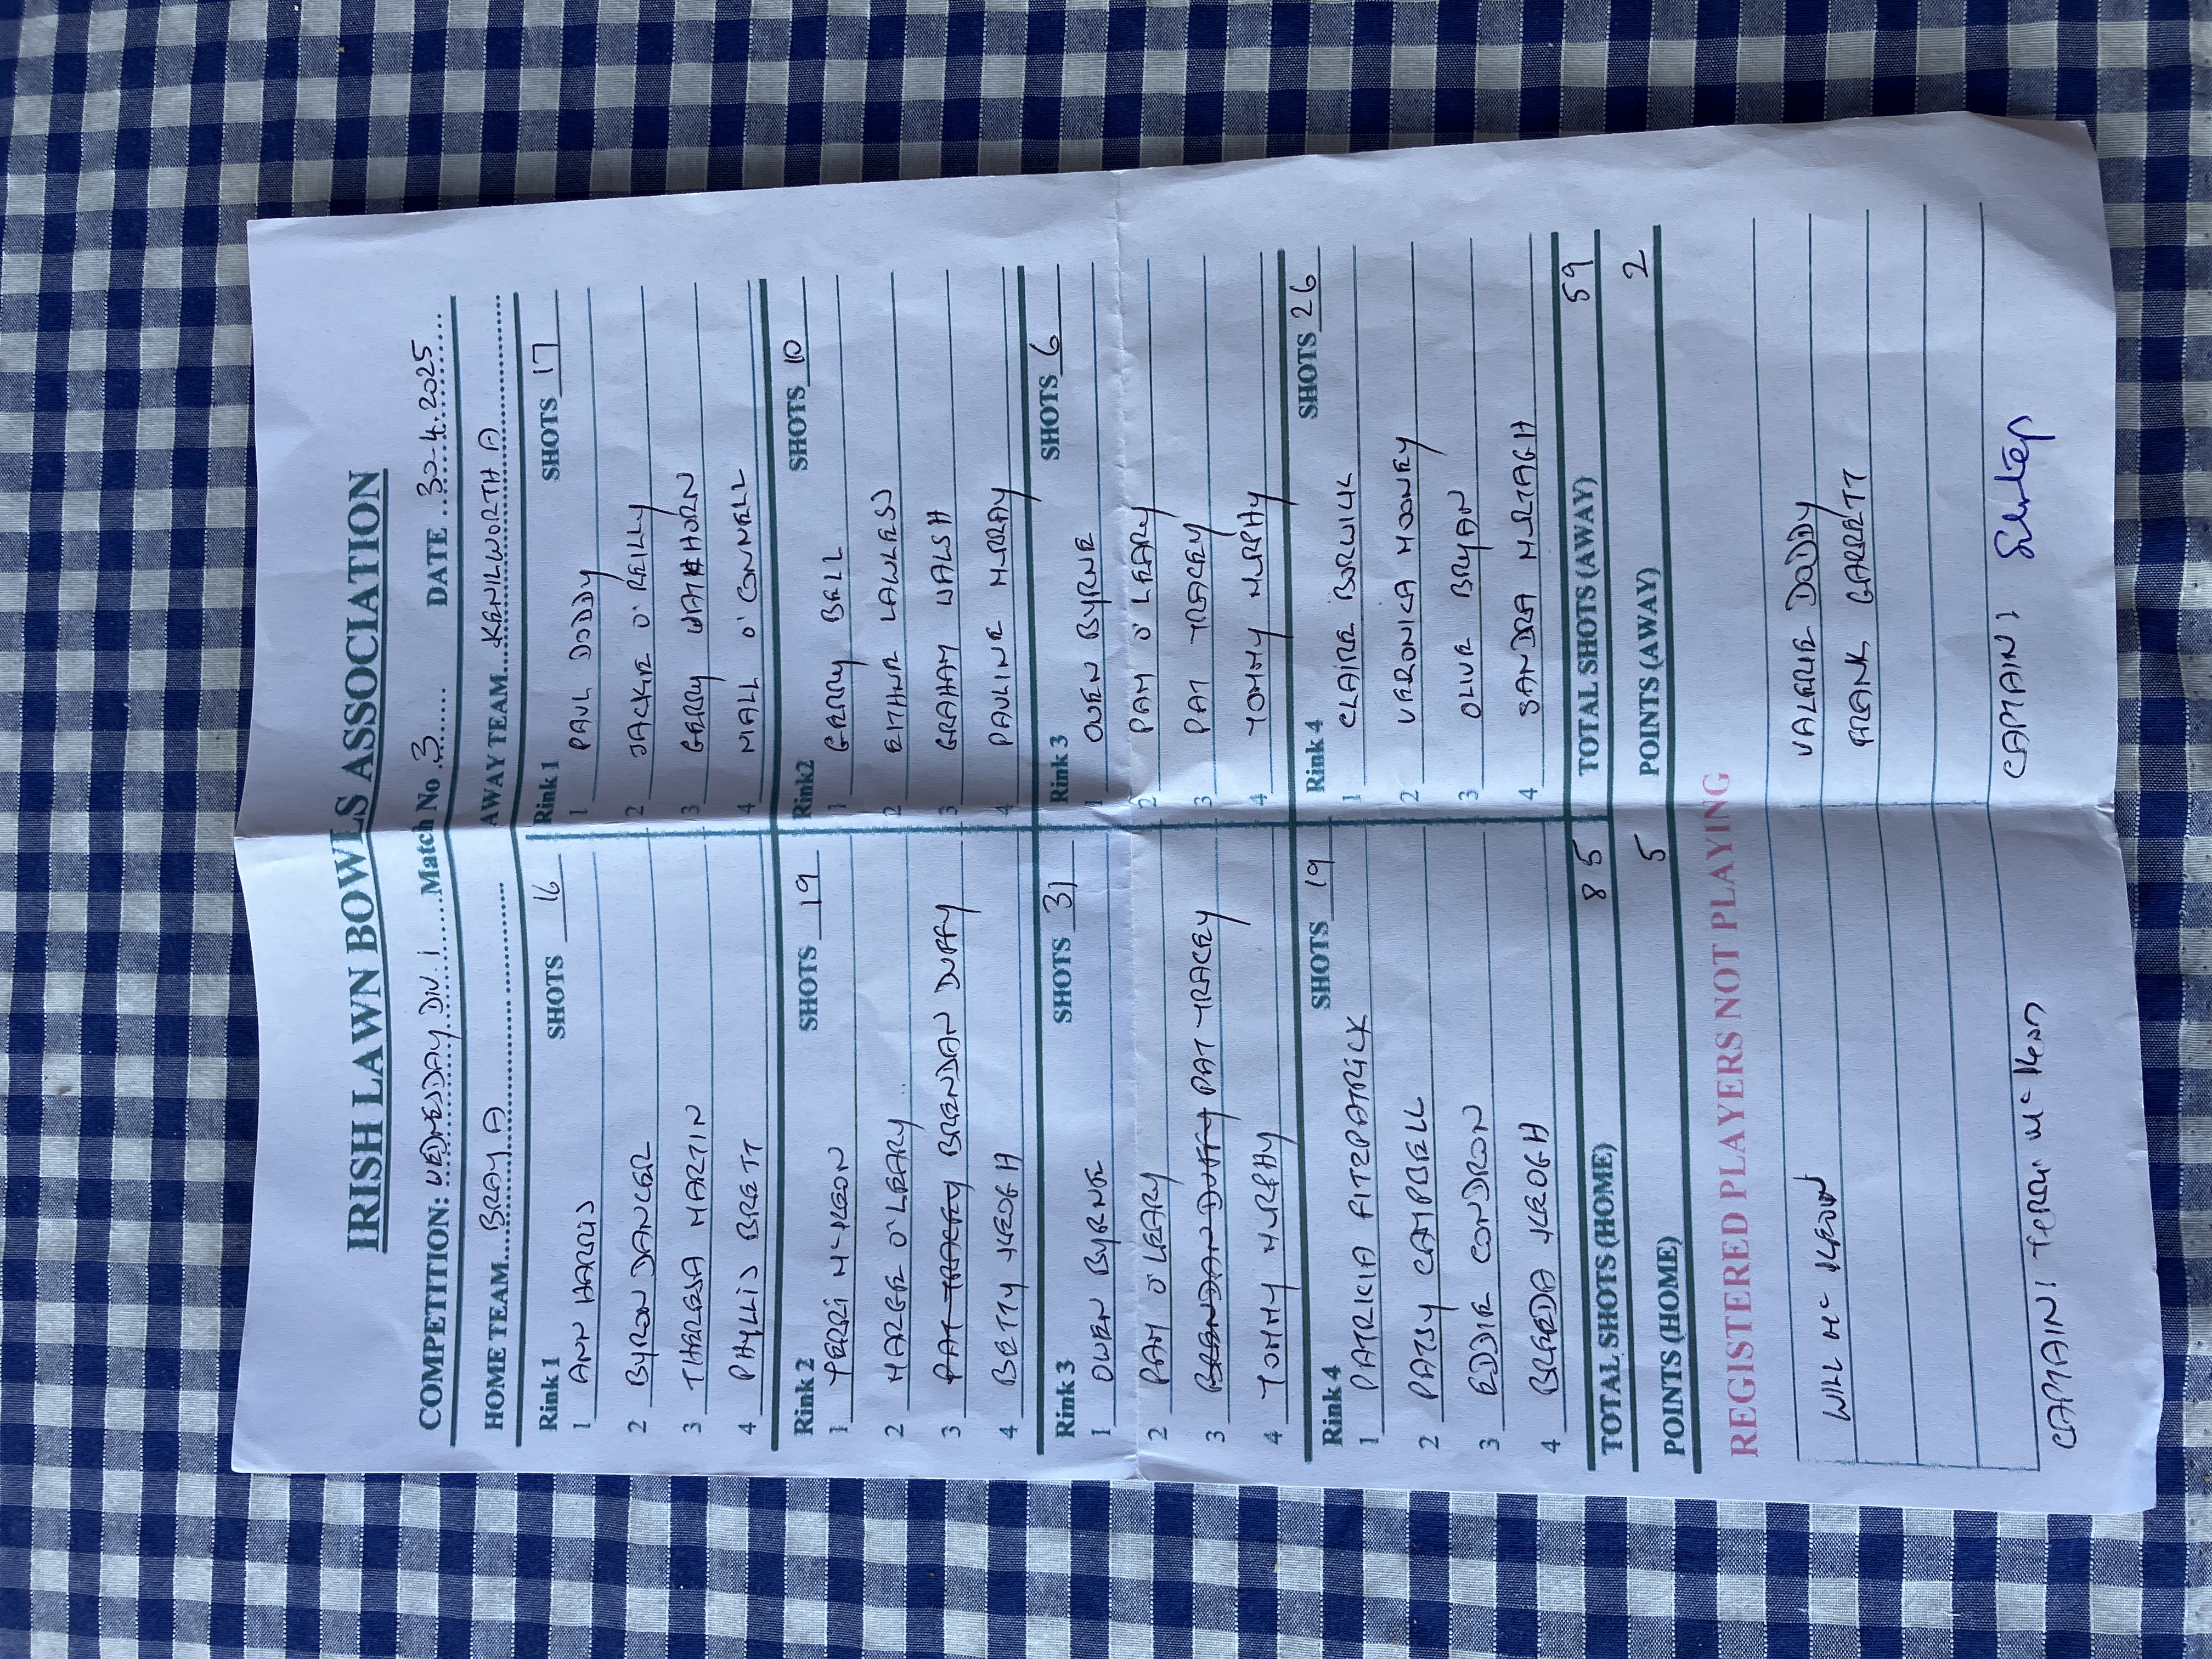 IRISH LAWN BOWLS ASSOCIATION
COMPETITION: WEDNESDAY DIV. 1 Match No 3 DATE 30.4.2025
HOME TEAM BRAY A AWAY TEAM KENILWORTH A
Rink 1 SHOTS 16 Rink 1 SHOTS 17
1 ANN HARRIS 1 PAUL DODDY
2 BYRON DANCER 2 JACKIE O'REILLY
3 THERESA MARTIN 3 GERRY WATHORN
4 PHYLLIS BRETT 4 NIALL O'CONNELL
Rink 2 SHOTS 19 Rink2 SHOTS 10
1 TERRI McKEON 1 GERRY BELL
2 MARGE O'LEARY 2 EITHNE LAWLESS
3 PAT TRACEY BRENDAN DUFFY 3 GRAHAM WALSH
4 BETTY KEOGH 4 PAULINE MURRAY
Rink 3 SHOTS 31 Rink 3 SHOTS 6
1 OWEN BYRNE 1 OWEN BYRNE
2 PAM O'LEARY 2 PAM O'LEARY
3 BRENDAN DUFFY PAT TRACEY 3 PAT TRACEY
4 TOMMY MURPHY 4 TOMMY MURPHY
Rink 4 SHOTS 19 Rink 4 SHOTS 26
1 PATRICIA FITZPATRICK 1 CLAIRE BORWICK
2 PATSY CAMPBELL 2 VERONICA MOONEY
3 EDDIE CONDRON 3 OLIVE BRYAN
4 BREEDA KEOGH 4 SANDRA MURTAGH
TOTAL SHOTS (HOME) 85 TOTAL SHOTS (AWAY) 59
POINTS (HOME) 5 POINTS (AWAY) 2
REGISTERED PLAYERS NOT PLAYING
WILL McKEOWN VALERIE DODDY
FRANK GARRETT
CAPTAIN: Terri McKeon CAPTAIN: